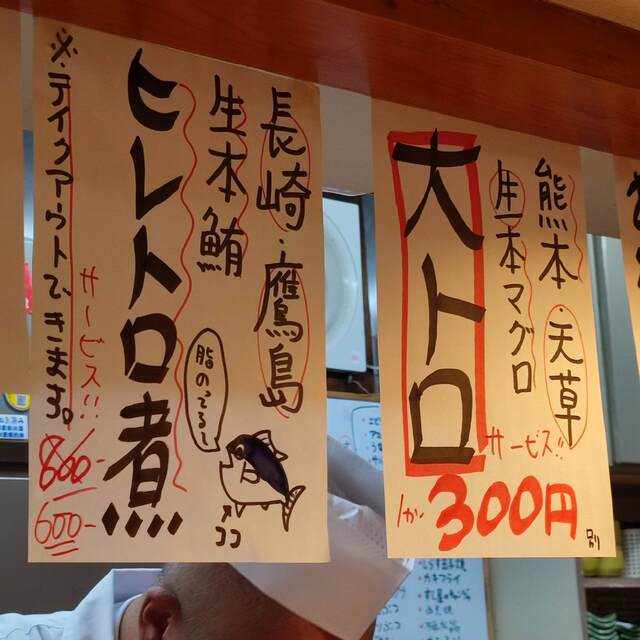 熊本・天草
生本マグロ
大トロ
サービス!!
1ヶ 300円
別
長崎・鷹島
生本鮪
ヒレトロ煮
脂のってる〜
ココ
サービス!!
800-
600-
※・テイクアウトできます。
カキフライ